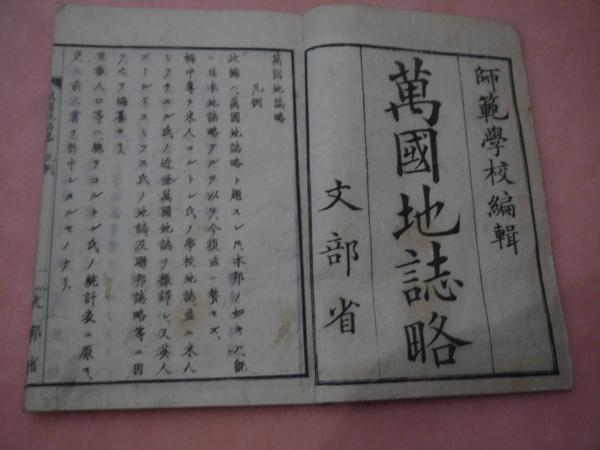 師範學校編輯
萬國地誌略
文部省
萬國地誌略
凡例
此編ハ萬國地誌略ト題スレ𪜈本邦ノ如キハ既
ニ日本地誌略アルヲ以テ今復茲ニ贅セズ
編中專ラ米人コルトン氏ノ學校地誌並ニ米人
ミッチェル氏ノ近世萬國地誌ヲ抄譯シ又英人
ゴールドスミッス氏ノ地誌及聯邦誌略等ニ因
テ之ヲ編纂セリ
里數人口等ハ總テコルトン氏ノ統計表ニ原キ
更ニ前三書ヲ折中シタルモノナリ
文部省